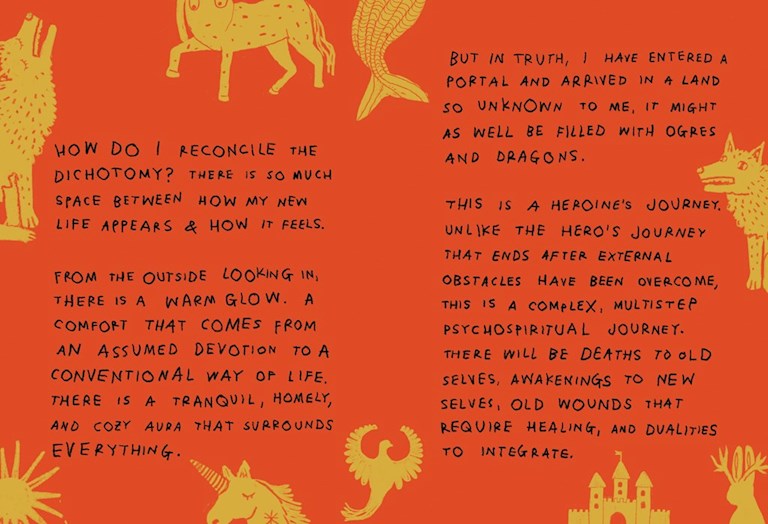 HOW DO I RECONCILE THE
DICHOTOMY? THERE IS SO MUCH
SPACE BETWEEN HOW MY NEW
LIFE APPEARS & HOW IT FEELS.
FROM THE OUTSIDE LOOKING IN,
THERE IS A WARM GLOW. A
COMFORT THAT COMES FROM
AN ASSUMED DEVOTION TO A
CONVENTIONAL WAY OF LIFE.
THERE IS A TRANQUIL, HOMELY,
AND COZY AURA THAT SURROUNDS
EVERYTHING.
BUT IN TRUTH, I HAVE ENTERED A
PORTAL AND ARRIVED IN A LAND
SO UNKNOWN TO ME, IT MIGHT
AS WELL BE FILLED WITH OGRES
AND DRAGONS.
THIS IS A HEROINE'S JOURNEY.
UNLIKE THE HERO'S JOURNEY
THAT ENDS AFTER EXTERNAL
OBSTACLES HAVE BEEN OVERCOME,
THIS IS A COMPLEX, MULTISTEP
PSYCHOSPIRITUAL JOURNEY.
THERE WILL BE DEATHS TO OLD
SELVES, AWAKENINGS TO NEW
SELVES, OLD WOUNDS THAT
REQUIRE HEALING, AND DUALITIES
TO INTEGRATE.